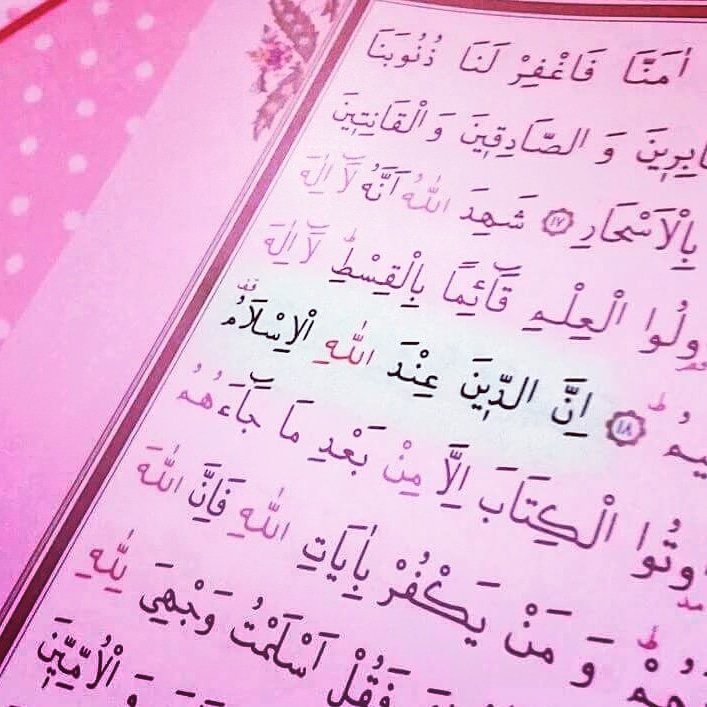 اٰمَنَّا فَاغْفِرْ لَنَا ذُنُوبَنَا
اَلصَّابِرِينَ وَ الصَّادِقِينَ وَ الْقَانِتِينَ
بِالْاَسْحَارِ ﴿١٧﴾ شَهِدَ اللّٰهُ اَنَّهُ لَٓا اِلٰهَ
وَاُولُوا الْعِلْمِ قَٓائِمًا بِالْقِسْطِ لَٓا اِلٰهَ
﴿١٨﴾ اِنَّ الدِّينَ عِنْدَ اللّٰهِ الْاِسْلَامُ
اُوتُوا الْكِتَابَ اِلَّا مِنْ بَعْدِ مَا جَٓاءَهُمُ
وَ مَنْ يَكْفُرْ بِاٰيَاتِ اللّٰهِ فَاِنَّ اللّٰهَ
فَقُلْ اَسْلَمْتُ وَجْهِيَ لِلّٰهِ
وَ الْاُمِّيّٖنَ